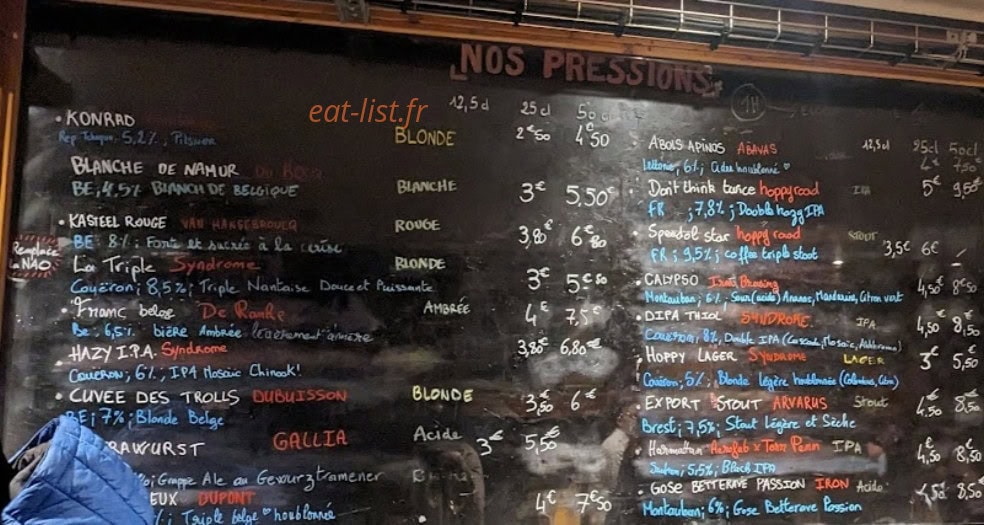 NOS PRESSIONS
eat-list.fr
12,5cl 25cl
KONRAD BLONDE 2€50 4€50
5,2%, Pilsner
BLANCHE DE NAMUR BLANCHE 3€ 5,50€
BE, 4,5% BLANCH DE BELGIQUE
KASTEEL ROUGE VAN HONSEBROUCQ ROUGE 3,80€ 6€80
BE 8%; Fort et sucrée à la cerise
Remplace
la NAO
La Triple Syndrome BLONDE 3€ 5€50
Couëron; 8,5%; Triple Nantaise Douce et Puissante
Franc belge De Ranke AMBRÉE 4€ 7,5€
Be. 6,5% bière Ambrée légèrement amère
HAZY I.P.A. Syndrome 3,80€ 6,80€
COUËRON; 6%; IPA Mosaic Chinook!
CUVÉE DES TROLLS DUBUISSON BLONDE 3,50€ 6€
BE; 7%; Blonde Belge
RAWURST GALLIA Acide 3€ 5,50€
Grappe Ale au Gewurztramener
EUX DUPONT 4€ 7€50
Triple belge houblonnée
1H
12,5cl 25cl 50cl
ABOLS APINOS ABAVAS 4€ 7,50€
Lettonie; 6%; Cidre houblonné
Don't think twice hoppy road IPA 5€ 9,50€
FR ; 7,8%; Double hazy IPA
hoppy road STOUT 3,5€ 6€ /
FR; 9,5%; coffee triple stout
CALYPSO Brewing 4,50€ 8€50
Montauban; 6%; Sour (acide) Ananas, Mandarine, Citron vert
DIPA THIOL SYNDROME IPA 4,50€ 8,50€
COUËRON, 8%, Double IPA
HOPPY LAGER SYNDROME LAGER 3€ 5,50€
Couëron; 5%; Blonde légère houblonnée
EXPORT STOUT ARVARUS Stout 4.50€ 8,50€
Brest; 7,5%; Stout Légère et Sèche
IPA 4,50€ 8,50€
5,5%; Black IPA
GOSE BETTERAVE PASSION IRON Acide 4,50€ 8,50€
Montauban; 6%; Gose Betterave Passion